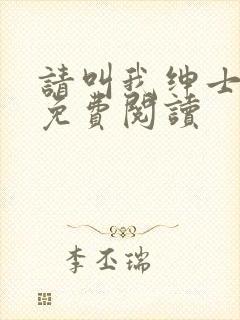 請叫我绅士
免費閱讀
李丕瑞